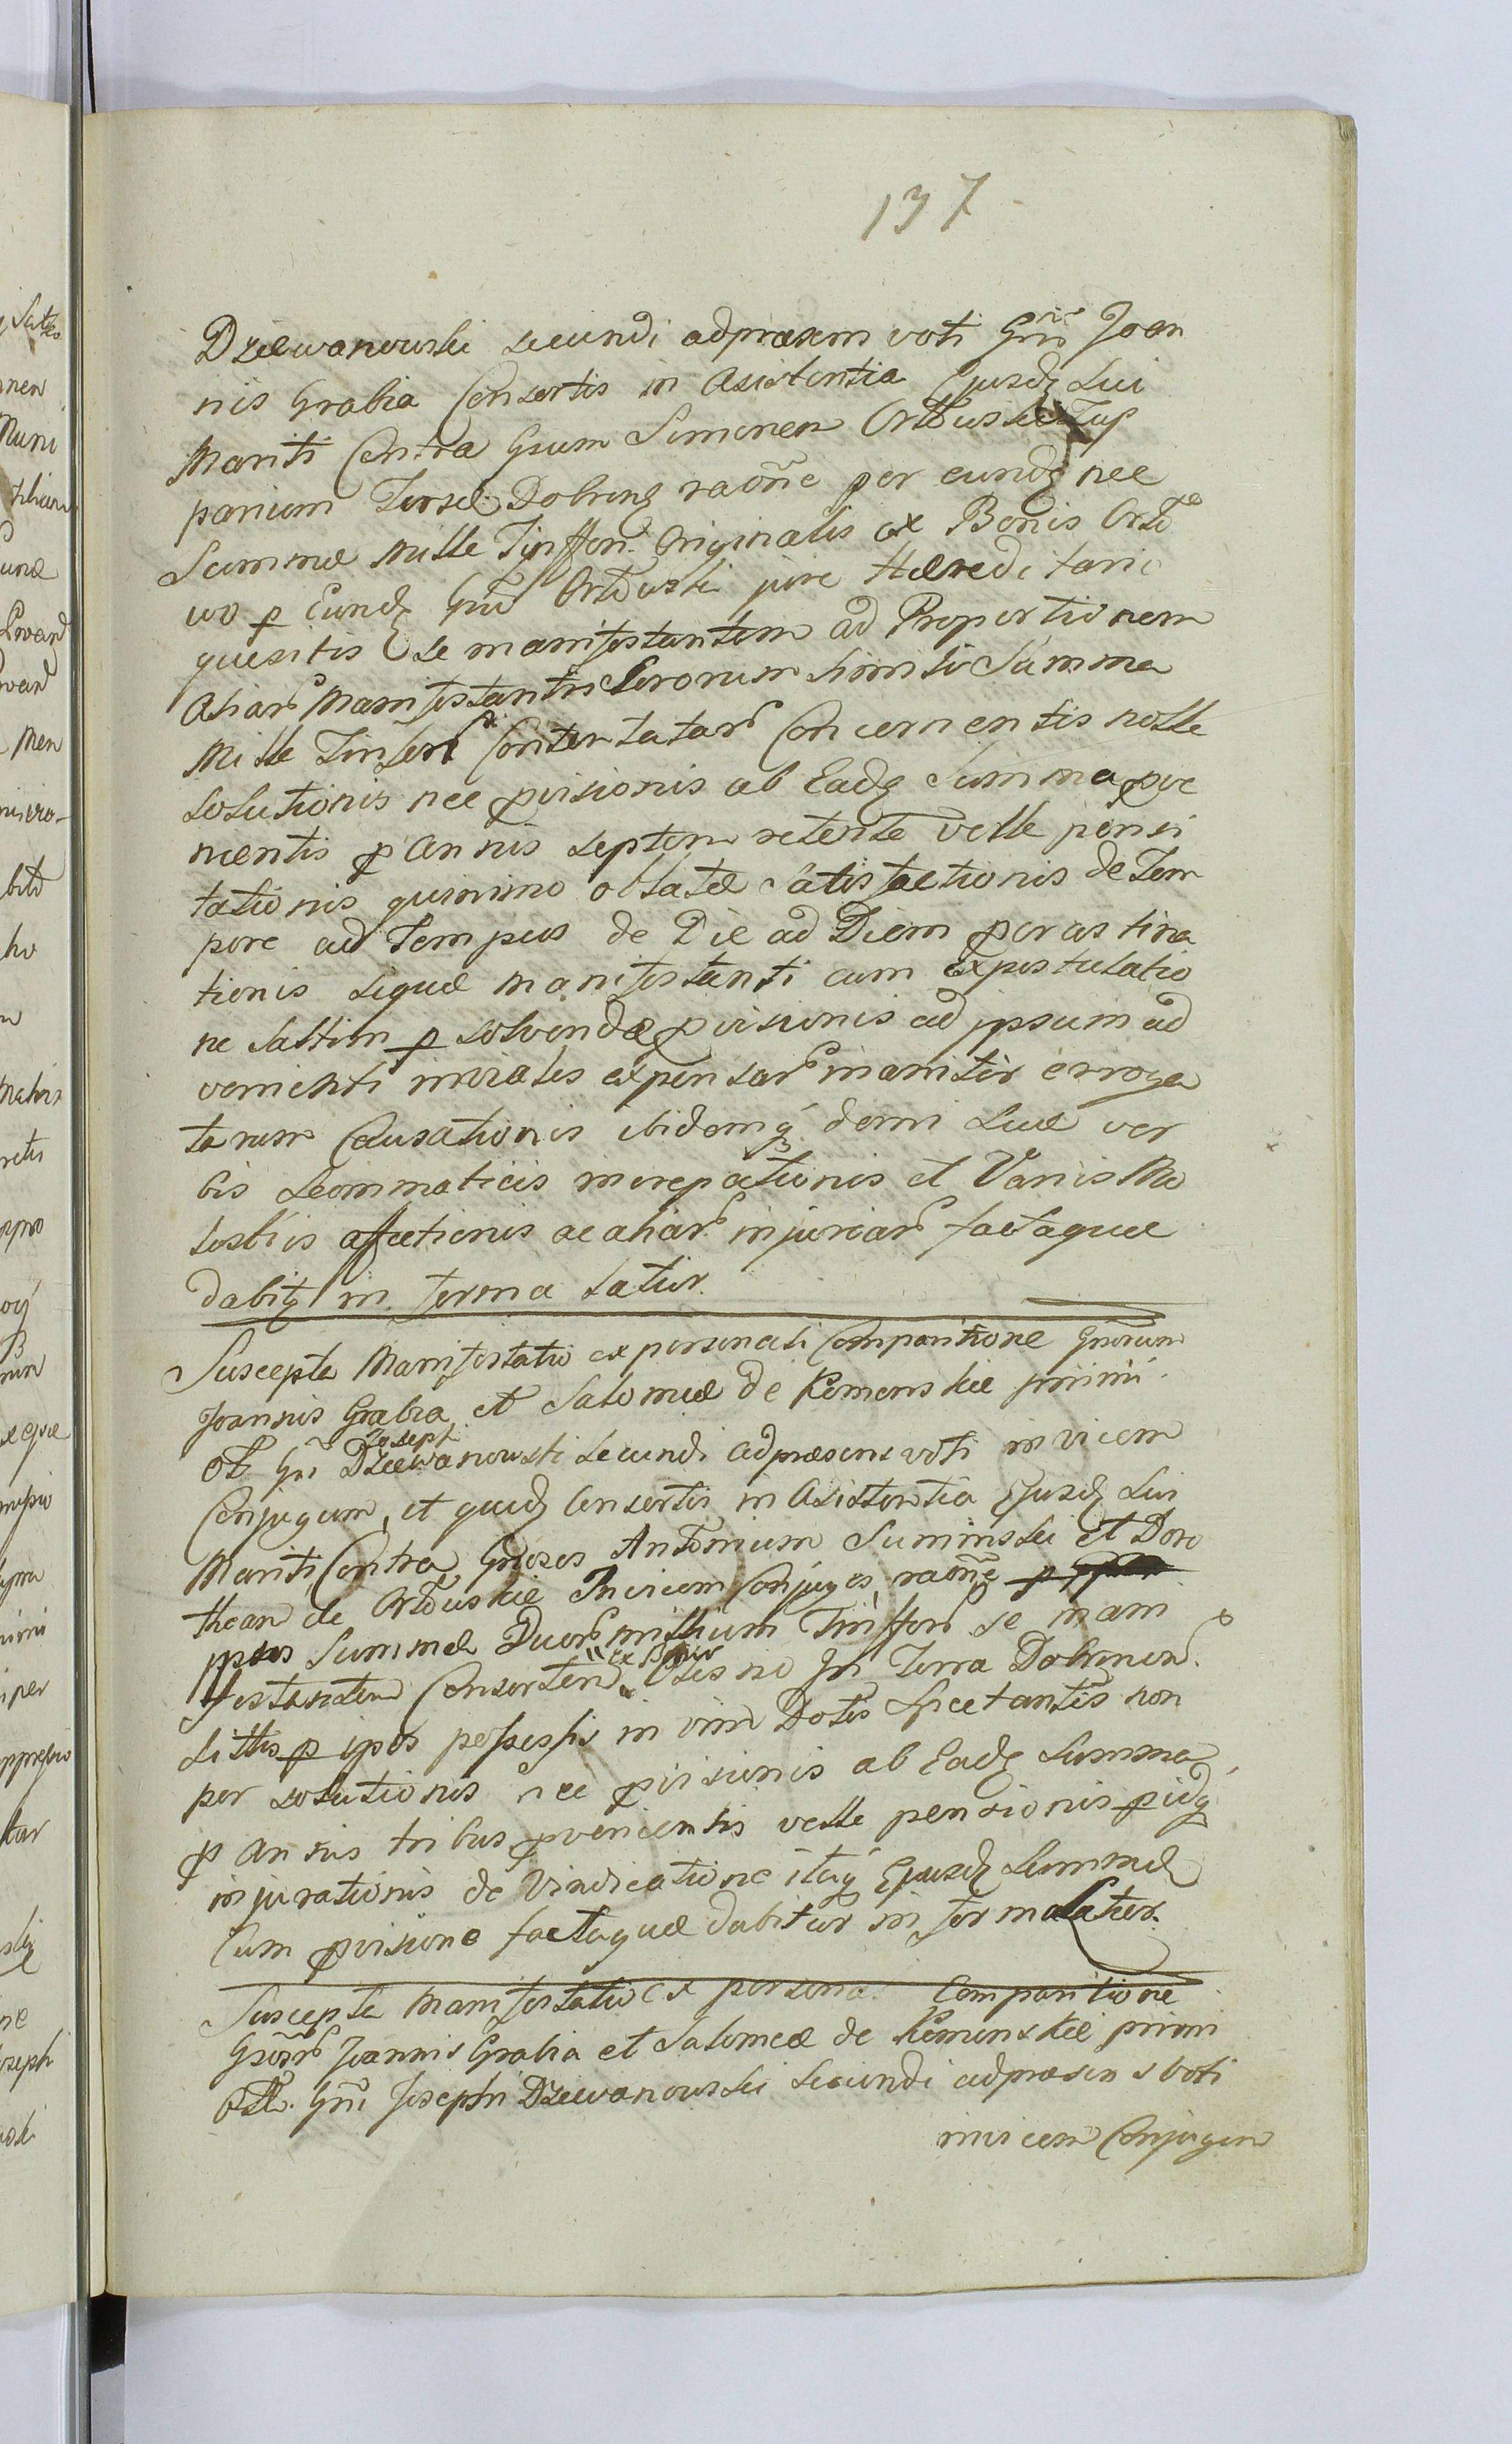 137
Dziewanowski secundi adpraesens voti Gnri Joan
nis Grabia Consortis in Asistentia Ejusdq Sui
Mariti Contra Gsum Simonem Ortowski Sup
parium Terrae Dobrinq raone per eundq nec
Summae mille Tynffon. Originalis ex Bonis Orto
wo p Eundq Gnu Ortowski jure Haereditario
quesitis Se manifestantem ad Proportionem
Aliar Manifestantis Sororum simili Summa
Mille Tinfon Contentatar Concernentis nolle
Solutionis nec provisionis ab Eadq Summa prove
nientis p Annis septem retente velle pensi
tationis quinimo oblatae Satisfactionis de Tem
pore ad Tempus de Die ad Diem procrastina
tionis seque manifestanti cum Expostulatio
ne saltim p solvendae provisionis ad ipsum ad
venienti invialis expensar inaniter erroga
tarum Causationis ibidemq domi Suae ver
bis Scommaticis increpationis et Variis Mo
lestiis affectionis ac aliar injuriar factaque
dabitq in forma latior.
Suscepta Manifestatio ex personali Comparitione Gnorum
Joannis Grabia et Salomeae de Komorskie primi
Joseph
olt Gni Dziewanowski secundi adpraesens voti invicem
Conjugum, et quidq Consortis in Asistentia Ejusdq Sui
Mariti Contra Gnosos Antonium Suminski et Doro
theam de Ortowskie Invicem Conjuges raone
ipsos Summae Duor millium Tinffon se mani
ex Bonis
festantem Consortem Osieno in Terra Dobrinen.
sittis p ipsos possessis in vim Dotis Spectantis non
per solutionis nec provisionis ab Eadq Summa
p Annis tribus provenientis velle pensionis pidq
injurationis de Vindicatione itaq Ejusdq Summae
Cum provisione factaque dabitur in forma Latior.
Suscepta Manifestatio ex persona. Comparitione
Gnosor Joannis Grabia et Salomeae de Komorskie primi
Olt. Gni Josephi Dziewanowski secundi adpraesens voti
invicem Conjugum